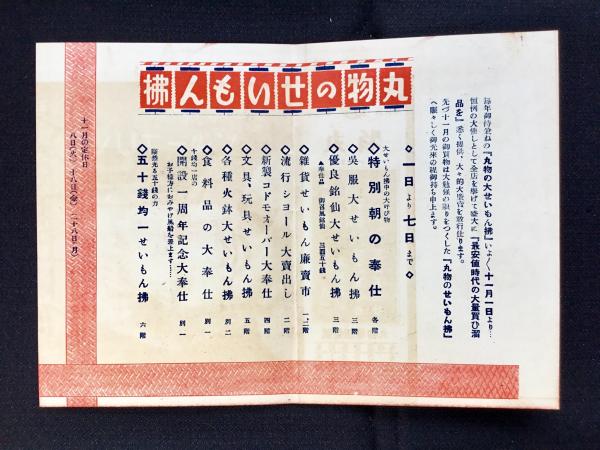 毎年御待兼ねの『丸物の大せいもん拂』いよ〳〵十一月一日より…
恒例の大催しとして全店を挙げて盛大に『最安値時代の大量買ひ溜
品を』悉く提供、大々的大売出を敢行仕ります。
先づ十一月の御買物は大勉強の限りをつくした『丸物のせいもん拂』
へ賑々しく御光来の程御待ち申上ます。
丸物のせいもん拂
◇一日より七日まで◇
大せいもん拂中の大呼び物
◇特別朝の奉仕 各階
◇呉服大せいもん拂 三階
◇優良銘仙大せいもん拂 三階
▲奉仕品 御召風銘仙 三圓五十銭
◇雑貨せいもん廉賣市 一、二階
◇流行ショール大賣出し 二階
◇新製コドモオーバー大奉仕 四階
◇文具、玩具せいもん拂 五階
◇各種火鉢大せいもん拂 別二
◇食料品の大奉仕 別一
十銭均一店の
◇開設一周年記念大奉仕 別一
お子様方におみやげ風船を差上ます……
躍然光る五十銭の力
◇五十銭均一せいもん拂 六階
十一月の定休日
八日(火) 十八日(金) 二十八日(月)